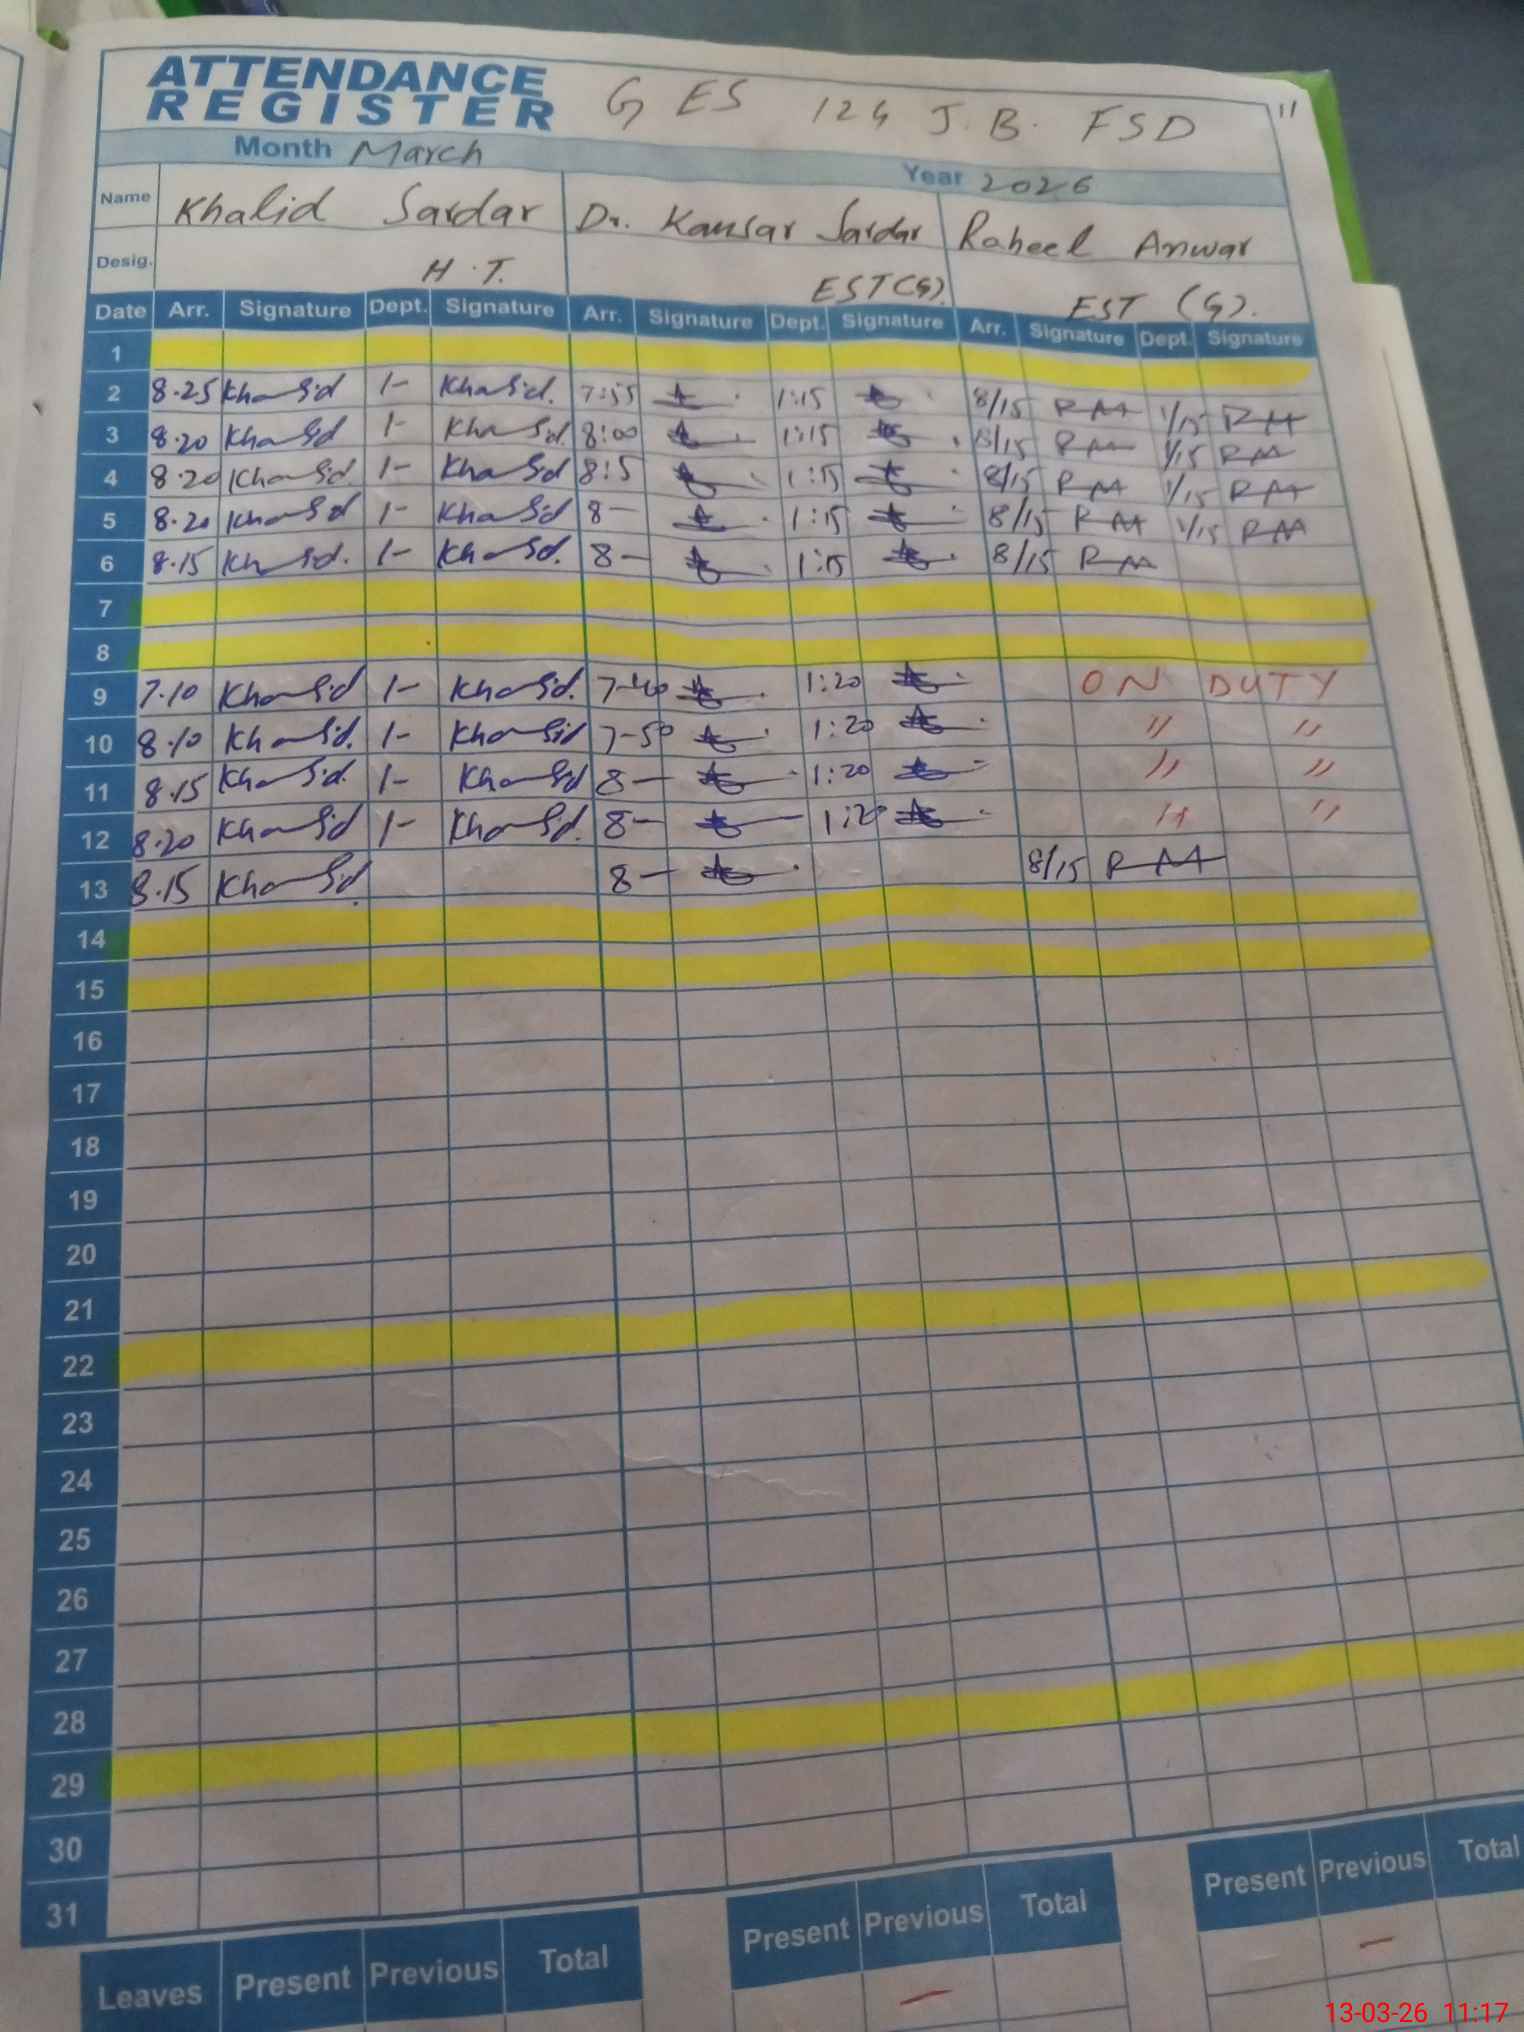 ATTENDANCE
REGISTER
G ES 124 J.B. FSD
11
Month March
Year 2026
Name Khalid Sardar Dr. Kausar Sardar Raheel Anwar
Desig. H.T. EST(G). EST (G).
Date Arr. Signature Dept. Signature Arr. Signature Dept. Signature Arr. Signature Dept. Signature
1
2 8.25 Khalid 1- Khalid. 7:55 1:15 8/15 RM 1/15 RM
3 8.20 Khalid 1- Khalid. 8:00 1:15 8/15 RM 1/15 RM
4 8.20 Khalid. 1- Khalid 8:5 1:15 8/15 RM 1/15 RM
5 8.20 Khalid 1- Khalid 8- 1:15 8/15 RM 1/15 RM
6 8.15 Khalid. 1- Khalid. 8- 1:15 8/15 RM
7
8
9 7.10 Khalid 1- Khalid. 7-40 1:20 ON DUTY
10 8.10 Khalid. 1- Khalid 7-50 1:20 " "
11 8.15 Khalid. 1- Khalid 8- 1:20 " "
12 8.20 Khalid 1- Khalid. 8- 1:20 " "
13 8.15 Khalid 8- 8/15 RM
14
15
16
17
18
19
20
21
22
23
24
25
26
27
28
29
30
31
Leaves Present Previous Total Present Previous Total Present Previous Total
- -
13-03-26 11:17